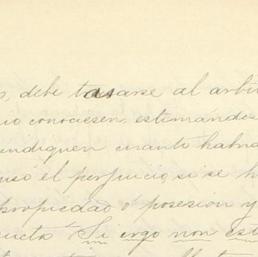 debe tasarse al arbi
conociesen, estimándos
indiquen cuanto habrá
usó el perjuicio, si se h
propiedad ó posesión y
ucta. Si ergo non est